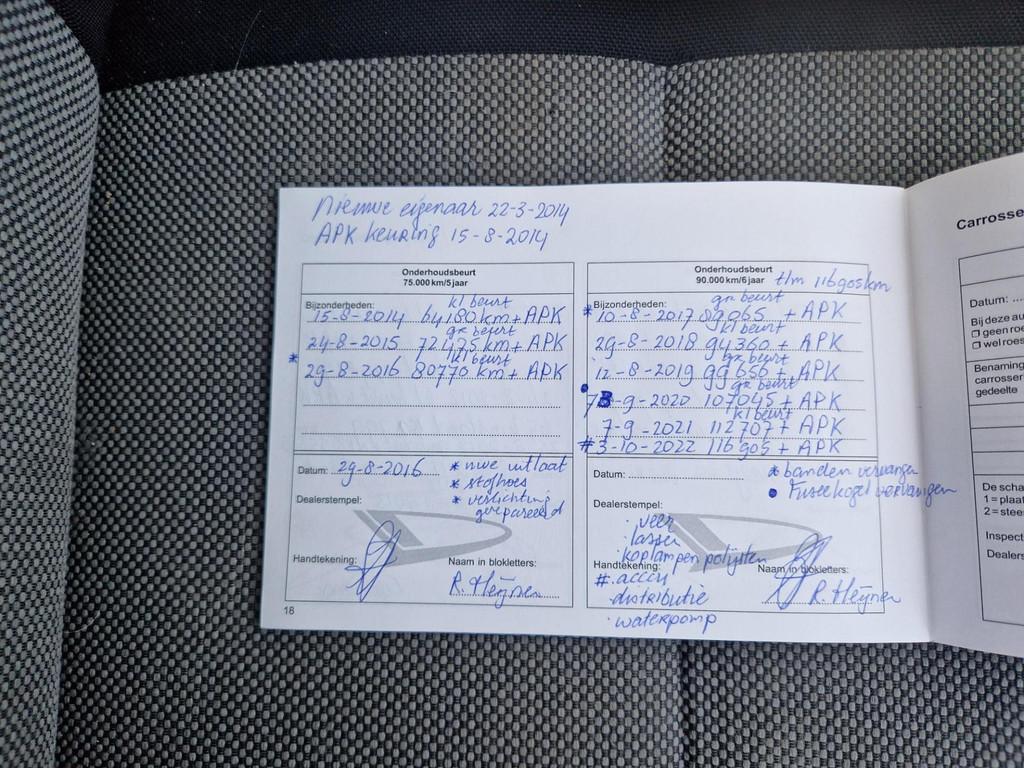 Nieuwe eigenaar 22-3-2014
APK keuring 15-8-2014
Onderhoudsbeurt
75.000 km/5 jaar
Bijzonderheden: kl beurt
15-8-2014 64180 km + APK
gr beurt
24-8-2015 72475 km + APK
kl beurt
* 29-8-2016 80770 km + APK
Datum: 29-8-2016
* nwe uitlaat
* stofhoes
* verlichting
gerepareerd
Dealerstempel:
Handtekening:
Naam in blokletters:
R. Heijnen
18
Onderhoudsbeurt
90.000 km/6 jaar t/m 116905km
Bijzonderheden: gr beurt
* 10-8-2017 89065 + APK
kl beurt
29-8-2018 94360 + APK
gr beurt
12-8-2019 99656 + APK
gr beurt
• 7-9-2020 107045 + APK
kl beurt
7-9-2021 112707 + APK
# 3-10-2022 116905 + APK
Datum:
* banden vervangen
• Fuseekogel vervangen
Dealerstempel:
· veer
· lassen
· koplampen polijsten
Handtekening:
Naam in blokletters:
#. accu
· distributie
R. Heijnen
· waterpomp
Carrosse
Datum:
Bij deze au
geen roe
wel roes
Benaming
carrosser
gedeelte
De scha
1 = plaat
2 = stee
Inspect
Dealers